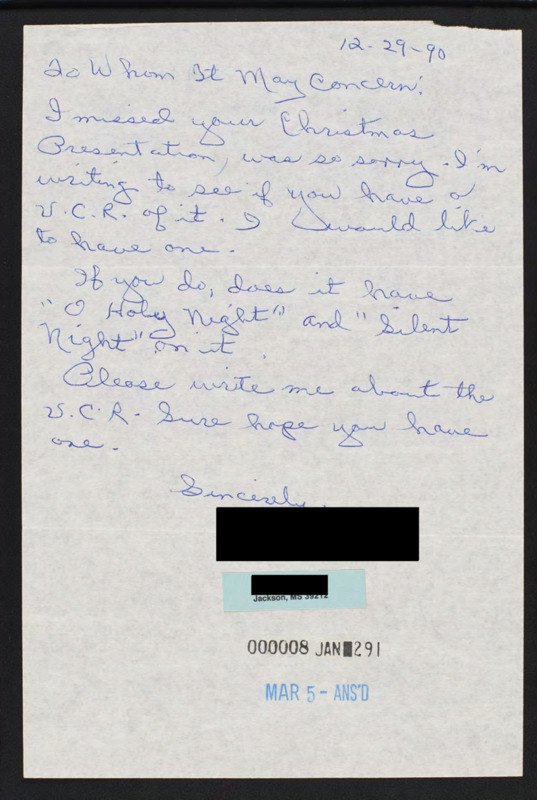 12-29-90
To Whom It May Concern:
I missed your Christmas
Presentation, was so sorry. I'm
writing to see if you have a
V.C.R. of it. I would like
to have one.
If you do, does it have
"O Holy Night" and "Silent
Night" on it.
Please write me about the
V.C.R. Sure hope you have
one.
Sincerely,
Jackson, MS 39212
000008 JAN 291
MAR 5 - ANS'D